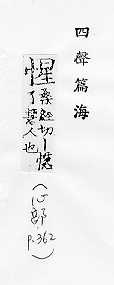 四聲篇海
惺
桑經切丨憁
了慧人也
(心部,
p.362)